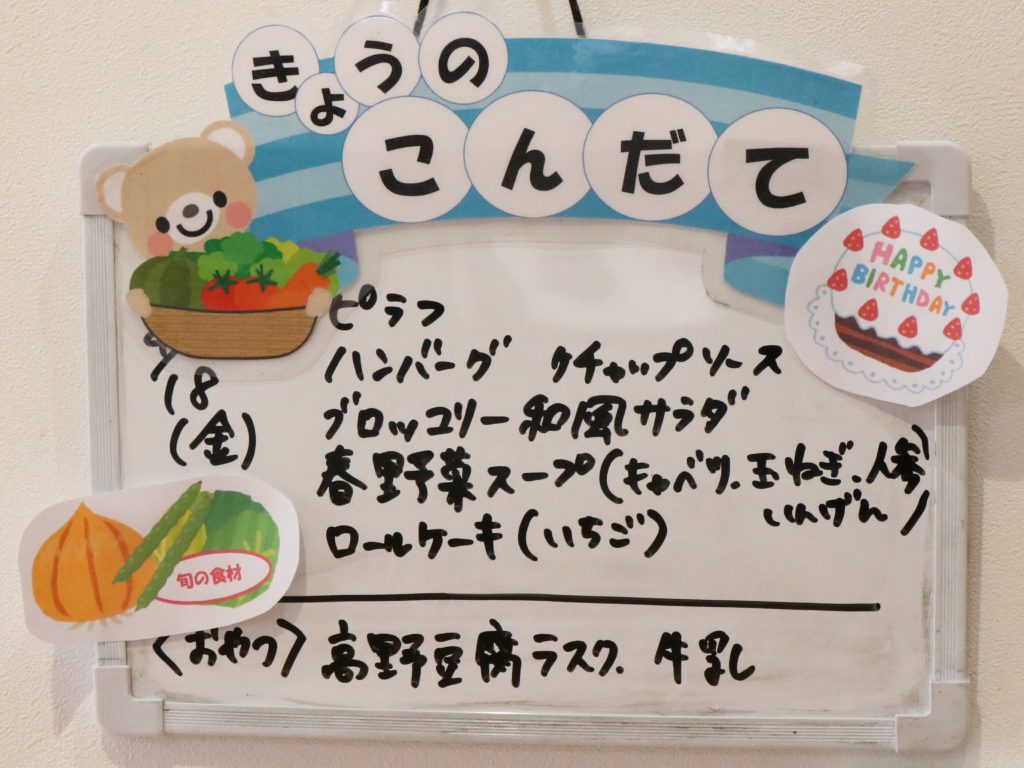 きょうの
こんだて
HAPPY
BIRTHDAY
ピラフ
ハンバーグ ケチャップソース
18
(金)
ブロッコリー和風サラダ
春野菜スープ(キャベツ、玉ねぎ、人参
いんげん)
ロールケーキ(いちご)
旬の食材
〈おやつ〉高野豆腐ラスク、牛乳